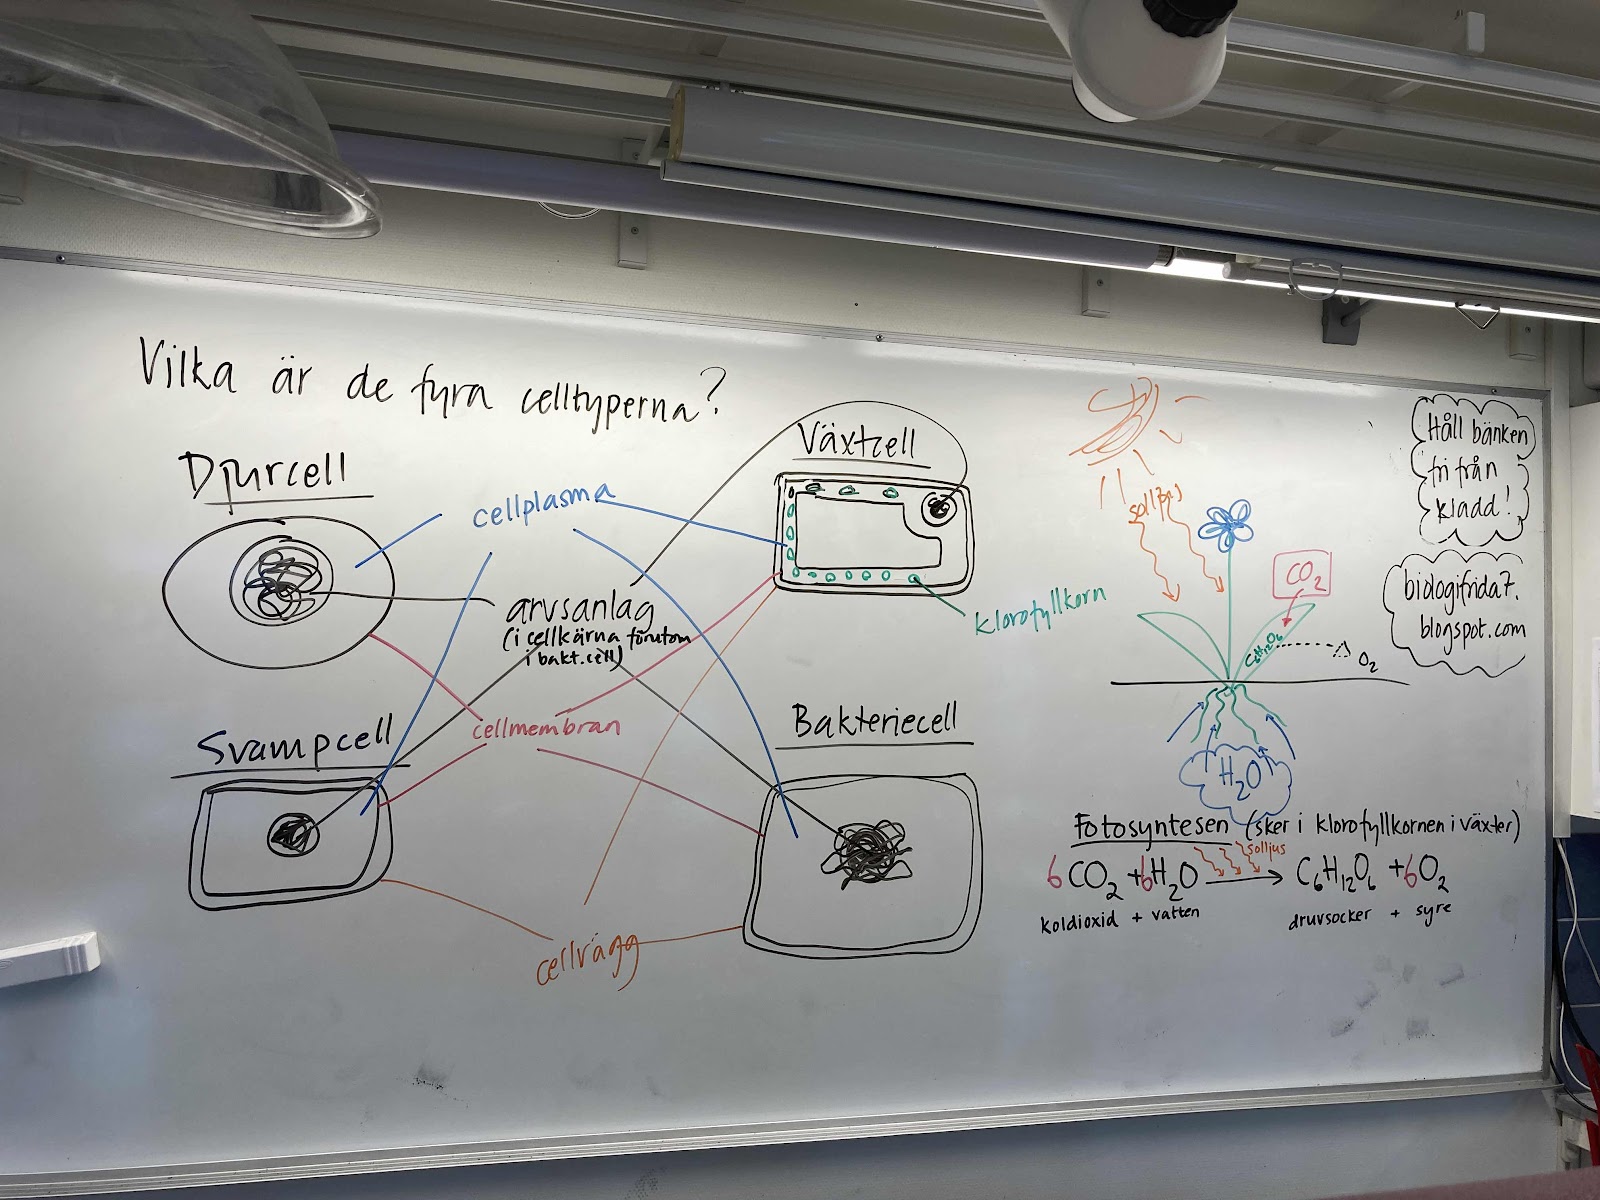 Vilka är de fyra celltyperna?
Djurcell
cellplasma
Växtcell
arvsanlag
(i cellkärna förutom
i bakt.cell)
klorofyllkorn
cellmembran
Svampcell
Bakteriecell
cellvägg
solljus
CO₂
C₆H₁₂O₆
O₂
H₂O
Håll bänken
fri från
kladd!
biologifrida7.
blogspot.com
Fotosyntesen (sker i klorofyllkornen i växter)
solljus
6CO₂ + 6H₂O → C₆H₁₂O₆ + 6O₂
koldioxid + vatten druvsocker + syre